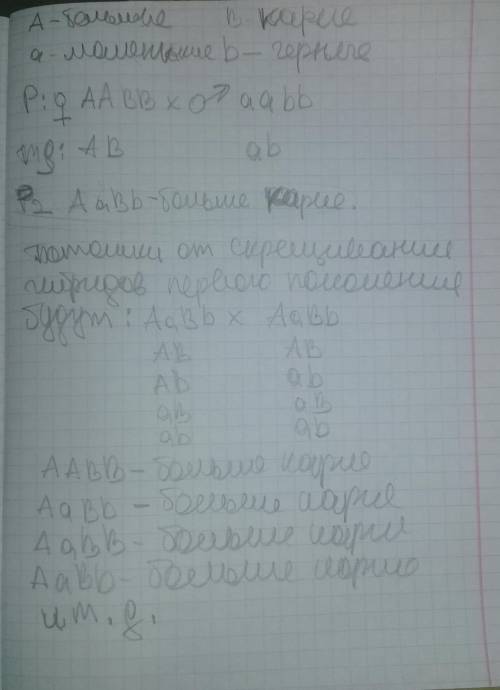 А-большие В. карие
а-маленькие b-черные
P: ♀ AABB x ♂ aabb
mg: AB ab
F2 AaBb-больше карие.
потомки от скрещивании
гибридов первого поколения
будут: AaBb x AaBb
AB AB
Ab ab
aB aB
ab ab
AABB-больше карие
AaBb-больше карие
AaBB-больше карие
AaBb-больше карие
и т. д.